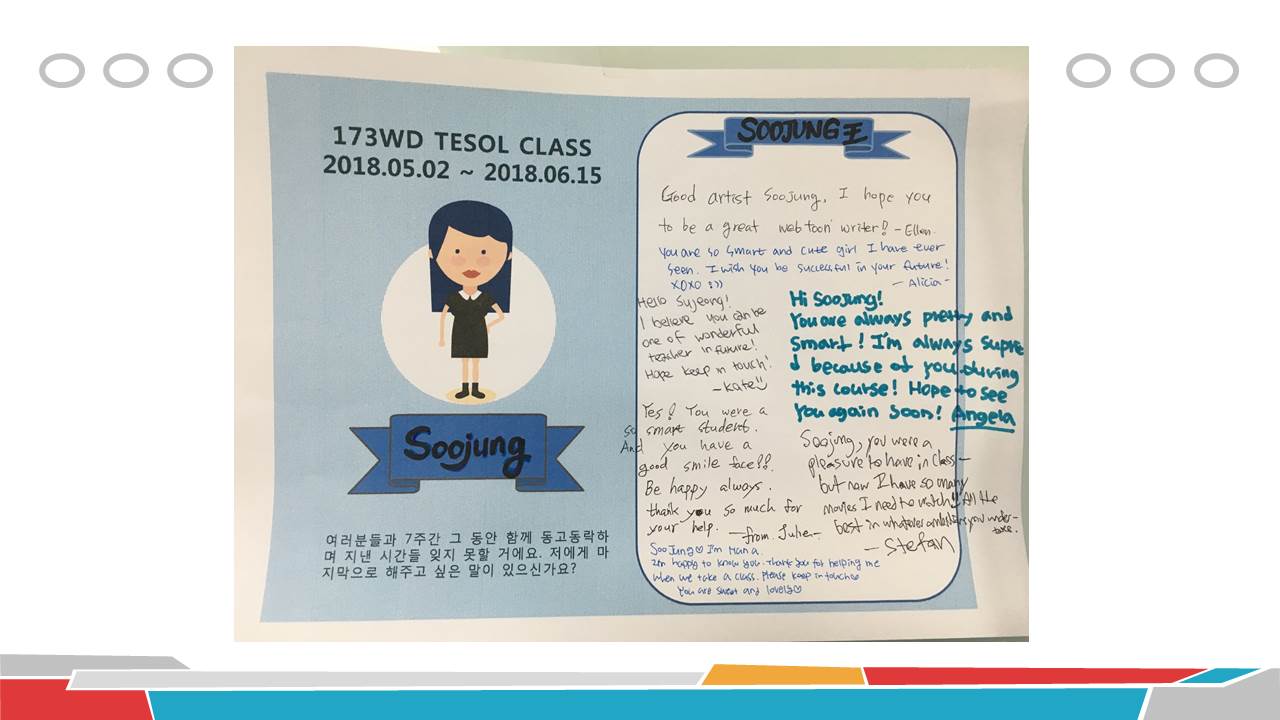 173WD TESOL CLASS
2018.05.02 ~ 2018.06.15
Soojung
여러분들과 7주간 그 동안 함께 동고동락하
며 지낸 시간들 잊지 못할 거에요. 저에게 마
지막으로 해주고 싶은 말이 있으신가요?
SOOJUNG王
Good artist Soojung, I hope you
to be a great webtoon writer! - Ellen.
You are so smart and cute girl I have ever
seen. I wish you be successful in your future!
XOXO :))
- Alicia -
Hello Sujeong!
I believe you can be
one of wonderful
teacher in future!
Hope keep in touch!
- Kate
Hi Soojung!
You are always pretty and
smart! I'm always supre
d because of you during
this course! Hope to see
you again soon! Angela
Yes! You were a
so smart student.
And you have a
good smile face!!
Be happy always.
thank you so much for
your help. - from. Julie -
Soojung, you were a
pleasure to have in class -
but now I have so many
movies I need to watch! All the
best in whatever ambitions you under-
take.
- Stefan
SooJung♡ I'm Hana.
I'm happy to know you. Thank you for helping me
when we take a class. Please keep in touch
You are sweet and lovely♡